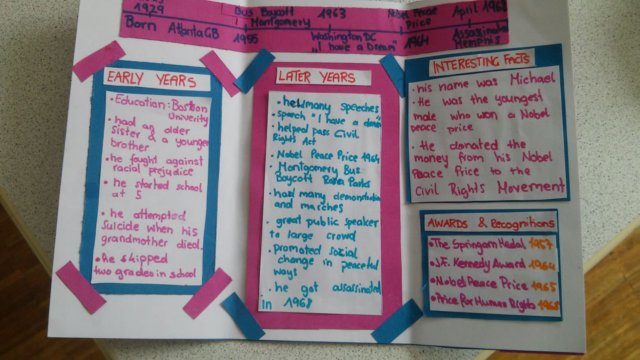 1929 Bus Boycott 1963 Nobel Peace April 1968
Montgomery Price
Born Atlanta GB 1955 Washington DC 1964 Assassinated
"I have a Dream" Memphis
EARLY YEARS
• Education: Boston
Univerity
• had an older
sister & a younger
brother
• he fought against
racial prejudice
• he started school
at 5
• he attempted
suicide when his
grandmother died.
• he skipped
two grades in school
LATER YEARS
• held many speeches
• speech "I have a dream"
• helped pass Civil
Rights Act
• Nobel Peace Price 1964
• Montgomery Bus
Boycott Rosa Parks
• had many demonstration
and marches
• great public speaker
to large crowd
• promoted sozial
change in peaceful
ways
• he got assassinated
in 1968
INTERESTING FACTS
• his name was Michael
• He was the youngest
male who won a Nobel
peace price
• He donated the
money from his Nobel
Peace Price to the
Civil Rights Movement
AWARDS & Recognitions
• The Springarn Medal 1957
• J.F. Kennedy Award 1964
• Nobel Peace Price 1965
• Price for Human Rights 1968